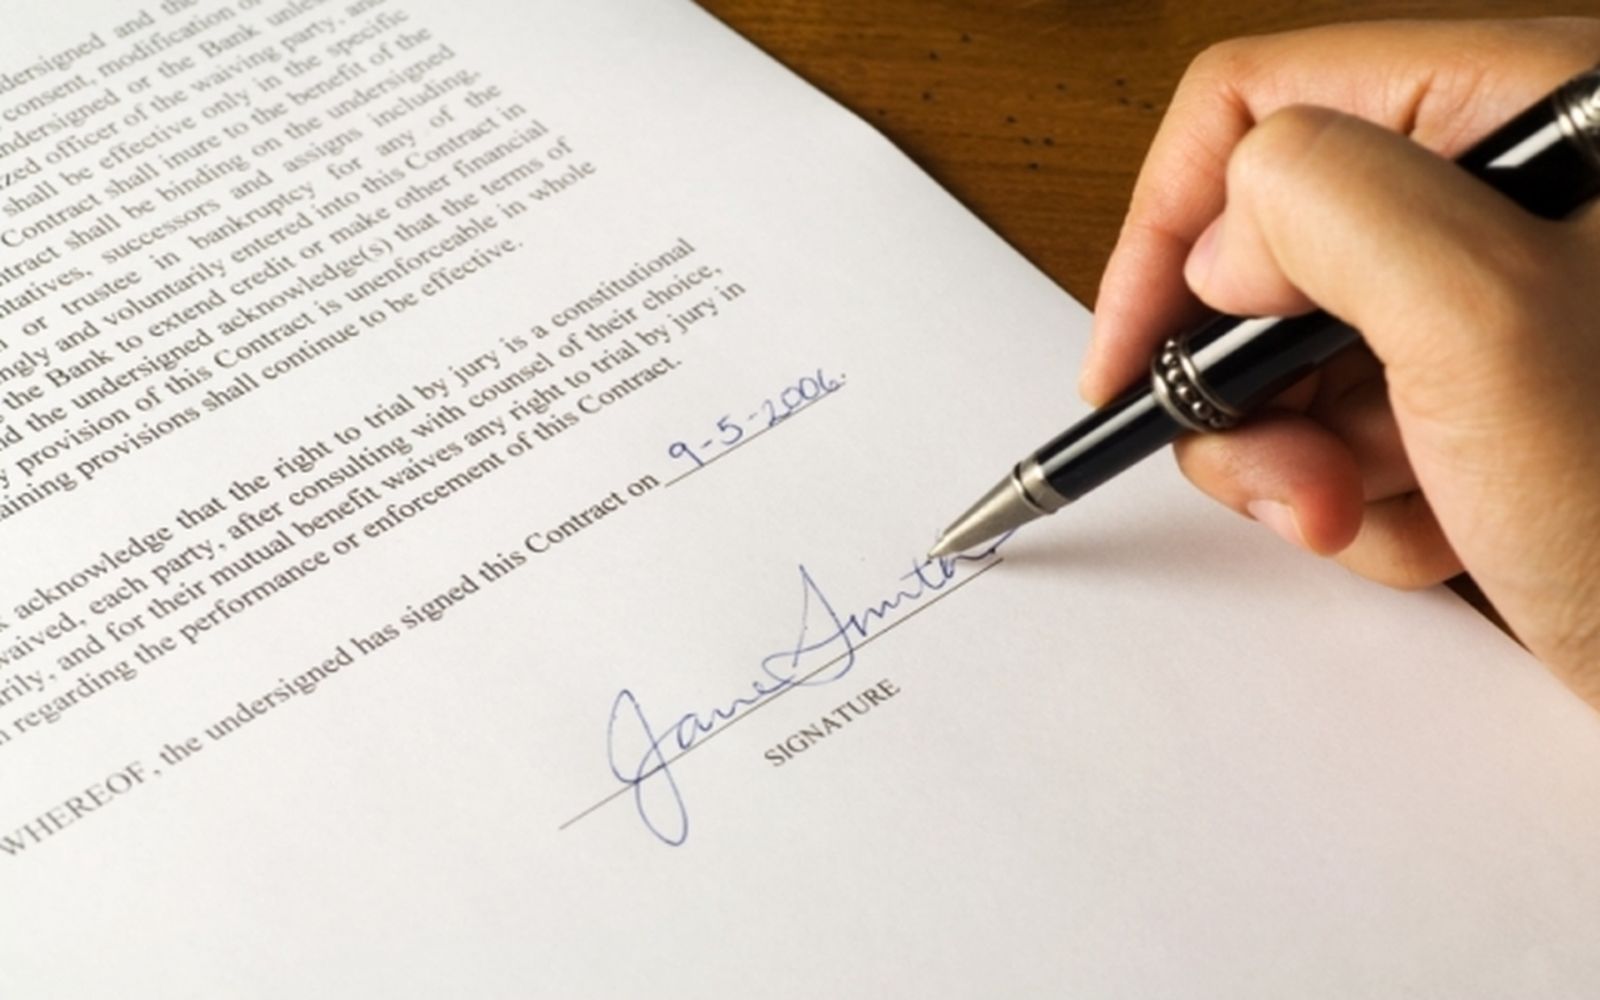 undersigned and the
consent, modification o
ndersigned or the Bank unles
zed officer of the waiving party, and
shall be effective only in the specific
Contract shall inure to the benefit of the
ntract shall be binding on the undersigned
ntatives, successors and assigns including,
or trustee in bankruptcy for any of the
ngly and voluntarily entered into this Contract in
the Bank to extend credit or make other financial
nd the undersigned acknowledge(s) that the terms of
y provision of this Contract is unenforceable in whole
aining provisions shall continue to be effective.
k acknowledge that the right to trial by jury is a constitutional
waived, each party, after consulting with counsel of their choice,
rily, and for their mutual benefit waives any right to trial by jury in
n regarding the performance or enforcement of this Contract.
WHEREOF, the undersigned has signed this Contract on 9-5-2006.
Jane Smith
SIGNATURE